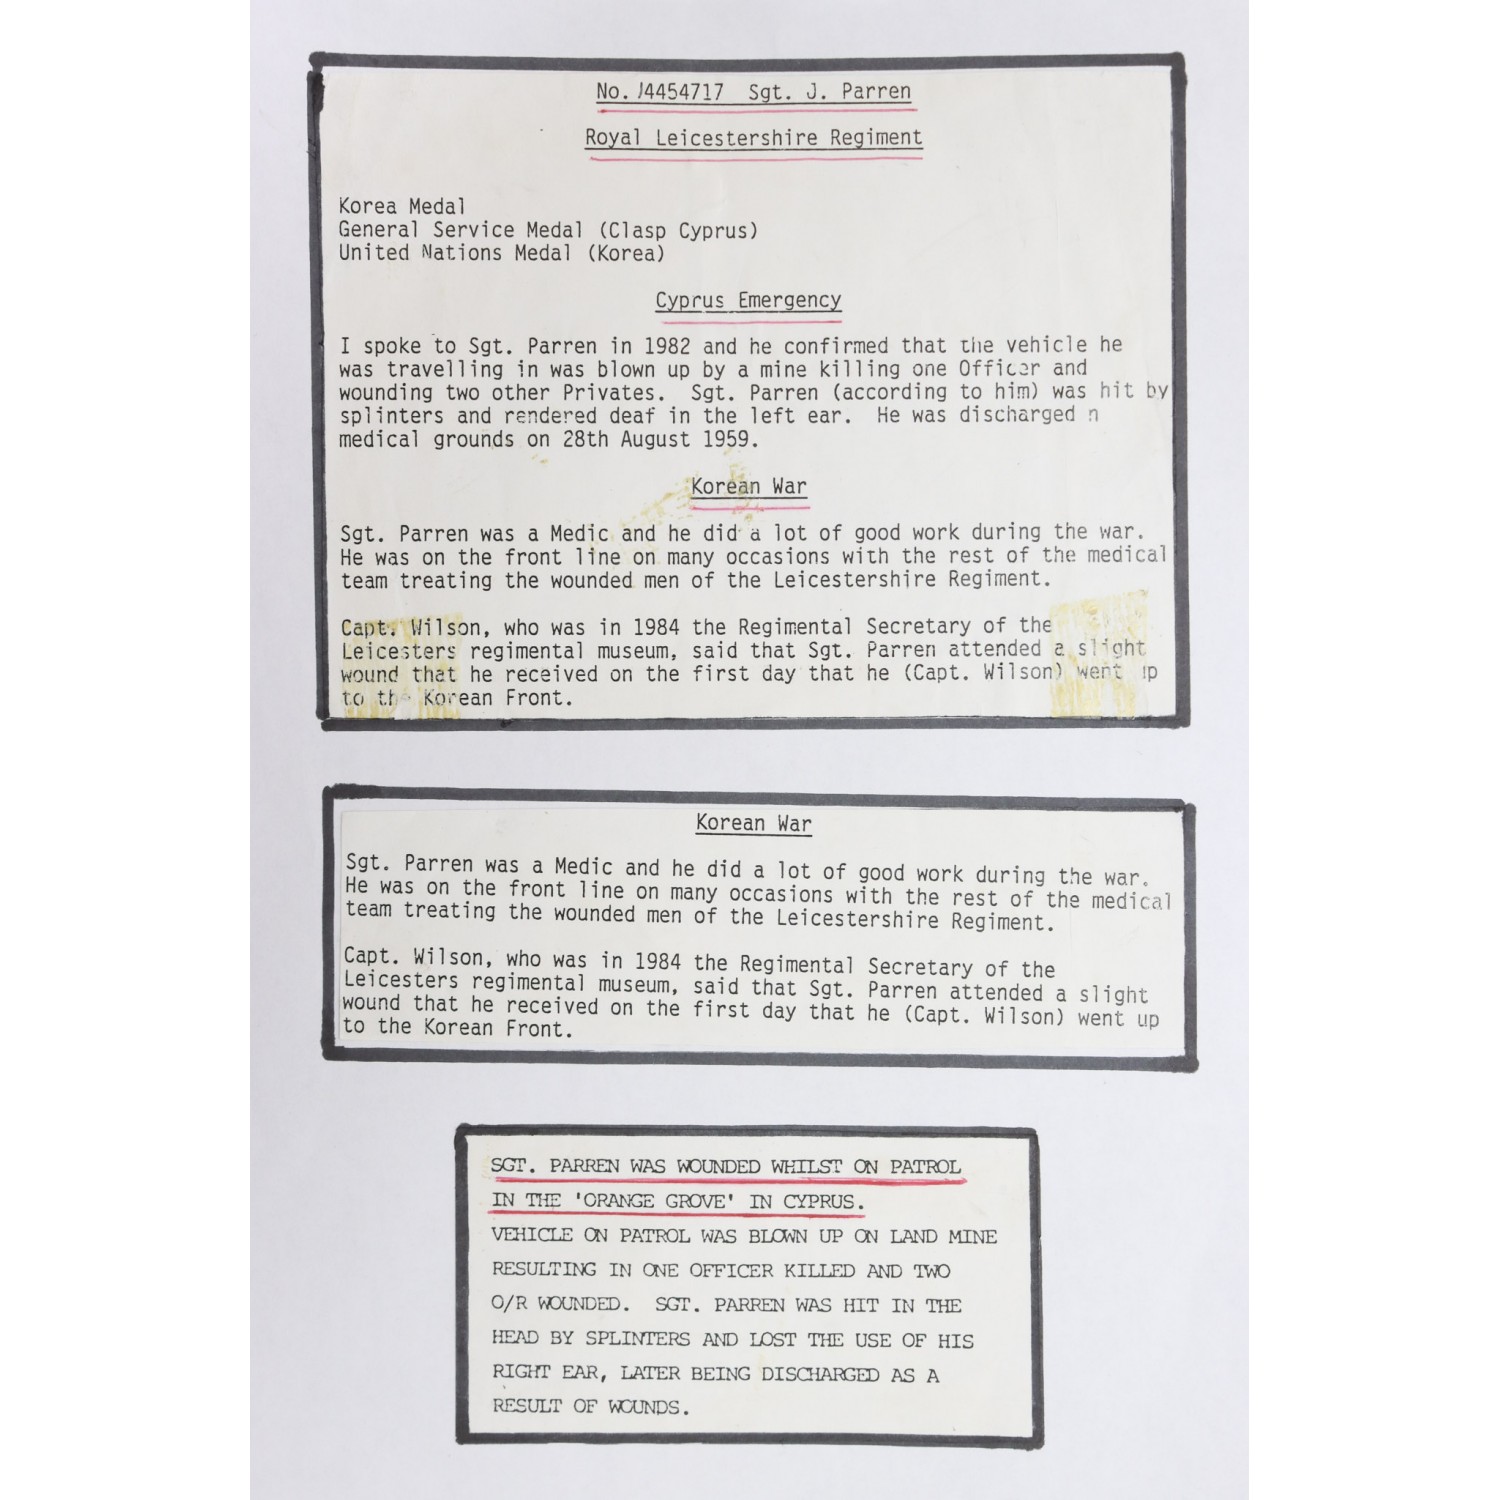 No. 14454717 Sgt. J. Parren
Royal Leicestershire Regiment
Korea Medal
General Service Medal (Clasp Cyprus)
United Nations Medal (Korea)
Cyprus Emergency
I spoke to Sgt. Parren in 1982 and he confirmed that the vehicle he
was travelling in was blown up by a mine killing one Officer and
wounding two other Privates. Sgt. Parren (according to him) was hit by
splinters and rendered deaf in the left ear. He was discharged n
medical grounds on 28th August 1959.
Korean War
Sgt. Parren was a Medic and he did a lot of good work during the war.
He was on the front line on many occasions with the rest of the medical
team treating the wounded men of the Leicestershire Regiment.
Capt. Wilson, who was in 1984 the Regimental Secretary of the
Leicesters regimental museum, said that Sgt. Parren attended a slight
wound that he received on the first day that he (Capt. Wilson) went up
to the Korean Front.
Korean War
Sgt. Parren was a Medic and he did a lot of good work during the war.
He was on the front line on many occasions with the rest of the medical
team treating the wounded men of the Leicestershire Regiment.
Capt. Wilson, who was in 1984 the Regimental Secretary of the
Leicesters regimental museum, said that Sgt. Parren attended a slight
wound that he received on the first day that he (Capt. Wilson) went up
to the Korean Front.
SGT. PARREN WAS WOUNDED WHILST ON PATROL
IN THE 'ORANGE GROVE' IN CYPRUS.
VEHICLE ON PATROL WAS BLOWN UP ON LAND MINE
RESULTING IN ONE OFFICER KILLED AND TWO
O/R WOUNDED. SGT. PARREN WAS HIT IN THE
HEAD BY SPLINTERS AND LOST THE USE OF HIS
RIGHT EAR, LATER BEING DISCHARGED AS A
RESULT OF WOUNDS.